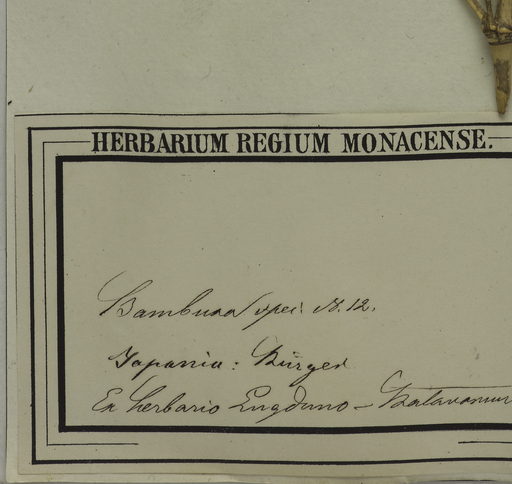 HERBARIUM REGIUM MONACENSE.
Bambusa spec. N. 12.
Japania: Bürger
Ex herbario Lugduno-Batavorum